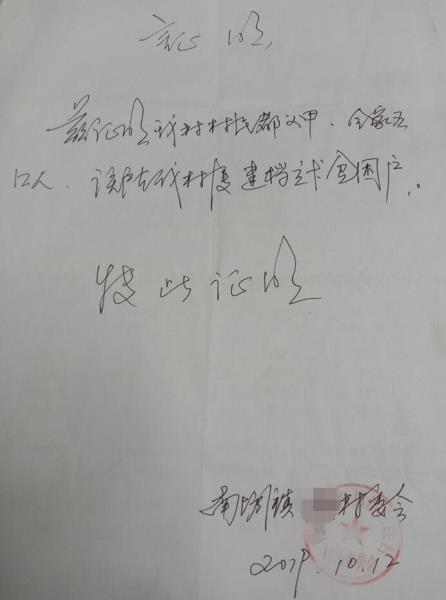 证明
兹证明我村村民都义甲、全家五
口人、该户在我村属建档立卡贫困户.
特此证明
南坳镇 村委会
2019.10.12